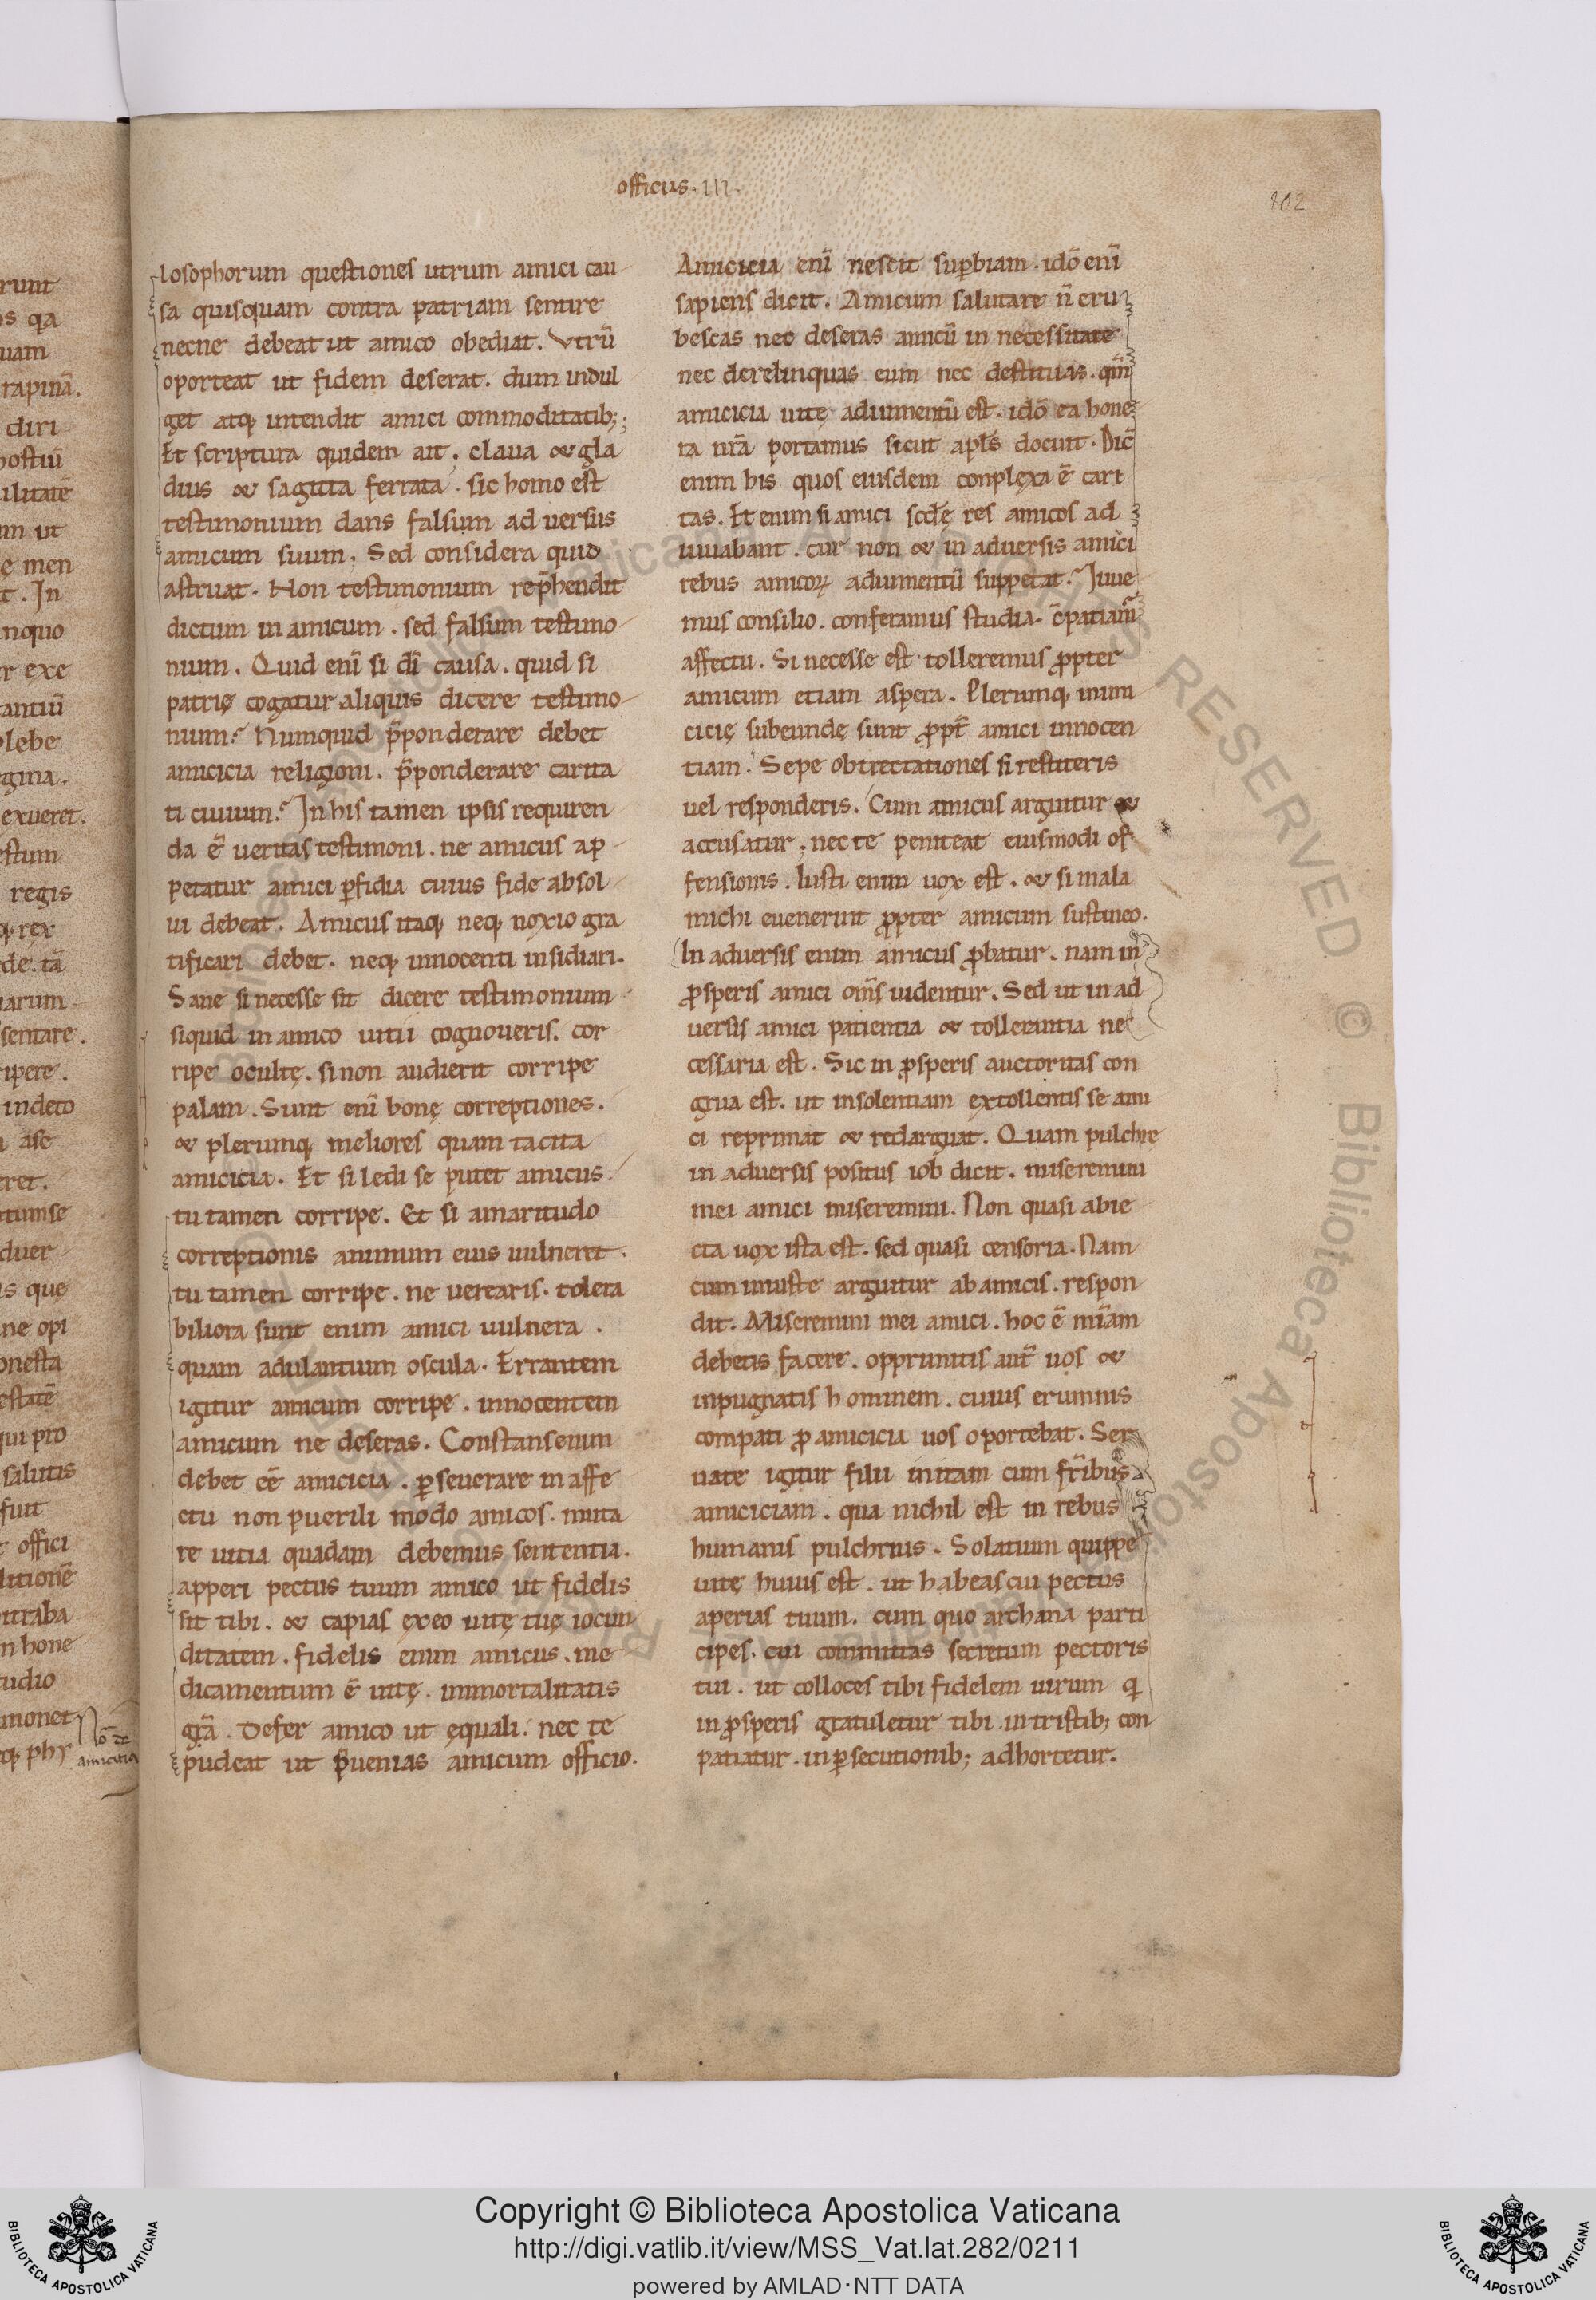 officiis · III ·
102
losophorum questiones utrum amici cau
sa quisquam contra patriam sentire
necne debeat ut amico obediat. Vtrū
oporteat ut fidem deserat. dum indul
get atq; intendit amici commoditatib;;
Et scriptura quidem ait. claua & gla
dius & sagitta ferrata. sic homo est
testimonium dans falsum aduersus
amicum suum; Sed considera quid
astruat. Non testimonium rep̄hendit
dictum in amicum. sed falsum testimo
nium. Quid enī si dī causa. quid si
patrię cogatur aliquis dicere testimo
nium? Numquid p̄ponderare debet
amicicia religioni. p̄ponderare carita
ti ciuium? In his tamen ipsis requiren
da ē ueritas testimoni. ne amicus ap
petatur amici ꝑfidia cuius fide absol
ui debeat. Amicus itaq; neq; noxio gra
tificari debet. neq; innocenti insidiari.
Sane si necesse sit dicere testimonium
siquid in amico uitii cognoueris. cor
ripe ocultę. si non audierit corripe
palam. Sunt enī bonę correptiones.
& plerumq; meliores quam tacita
amicicia. Et si ledi se putet amicus.
tu tamen corripe. Et si amaritudo
correptionis animum eius uulneret.
tu tamen corripe. ne uerearis. tolera
biliora sunt enim amici uulnera.
quam adulantium oscula. Errantem
igitur amicum corripe. innocentem
amicum ne deseras. Constans enim
debet eē amicicia. ꝑseuerare in affe
ctu non puerili modo amicos. muta
re uitia quadam debemus sententia.
apperi pectus tuum amico ut fidelis
sit tibi. & capias ex eo uitę tuę iocun
ditatem. fidelis enim amicus. me
dicamentum ē uitę. immortalitatis
grā. Defer amico ut ęquali. nec te
pudeat ut p̄uenias amicum officio.
Amicicia enī nescit suꝑbiam. idō enī
sapiens dicit. Amicum salutare n̄ eru
bescas nec deseras amicū in necessitate
nec derelinquas eum nec destituas. qm̄
amicicia uitę adiumentū est. idō ea hone
ra nr̄a portamus sicut apl̄s docuit. Dic̄
enim his quos eiusdem conplexa ē cari
tas. Et enim si amici scd̄ę res amicos ad
iuuabant. cur non & in aduersis amici
rebus amicoꝝ adiumentū suppetat? Iuue
mus consilio. conferamus studia. c̄patiam̄
affectu. Si necesse est tolleremus ꝓpter
amicum etiam aspera. Plerumq; inimi
cicię subeundę sunt ꝓpt̄ amici innocen
tiam. Sepe obtrectationes si restiteris
uel responderis. Cum amicus arguitur &
accusatur. nec te peniteat eiusmodi of
fensionis. Iusti enim uox est. & si mala
michi euenerint ꝓpter amicum sustineo.
In aduersis enim amicus ꝓbatur. nam in
ꝓsperis amici om̄s uidentur. Sed ut in ad
uersis amici patientia & tollerantia ne
cessaria est. Sic in ꝓsperis auctoritas con
grua est. ut insolentiam extollentis se ami
ci reprimat & redarguat. Quam pulchre
in aduersis positus iob dicit. miseremini
mei amici miseremini. Non quasi abie
cta uox ista est. sed quasi censoria. Nam
cum iniuste arguitur ab amicis. respon
dit. Miseremini mei amici. hoc ē mīam
debetis facere. opprimitis aut̄ uos &
inpugnatis hominem. cuius erumnis
compati ꝓ amicicia uos oportebat. Ser
uate igitur filii initam cum fr̄ibus
amiciciam. qua nichil est in rebus
humanis pulchrius. Solatium quippe
uitę huius est. ut habeas cui pectus
aperias tuum. cum quo archana parti
cipes. cui committas secretum pectoris
tui. ut colloces tibi fidelem uirum q̄
in ꝓsperis gratuletur tibi. in tristib; con
patiatur. in ꝑsecutionib; adhortetur.
runt
os qa
uam
rapinā.
diri
hostiū
ilitatē
im ut
e men
t. In
inquo
r exe
antiū
plebe
gina.
exueret.
estum
regis
q; rex
de. tā
iarum
sentare.
ipere.
indeco
ase
eret.
tumse
duer
is que
ne opi
onesta
estatē
qui pro
salutis
fuit
offici
litionē
ntraba
n hone
tudio
monet
q; phy
Nō de
amicitia
Copyright © Biblioteca Apostolica Vaticana
http://digi.vatlib.it/view/MSS_Vat.lat.282/0211
powered by AMLAD·NTT DATA
BIBLIOTECA APOSTOLICA VATICANA
BIBLIOTECA APOSTOLICA VATICANA